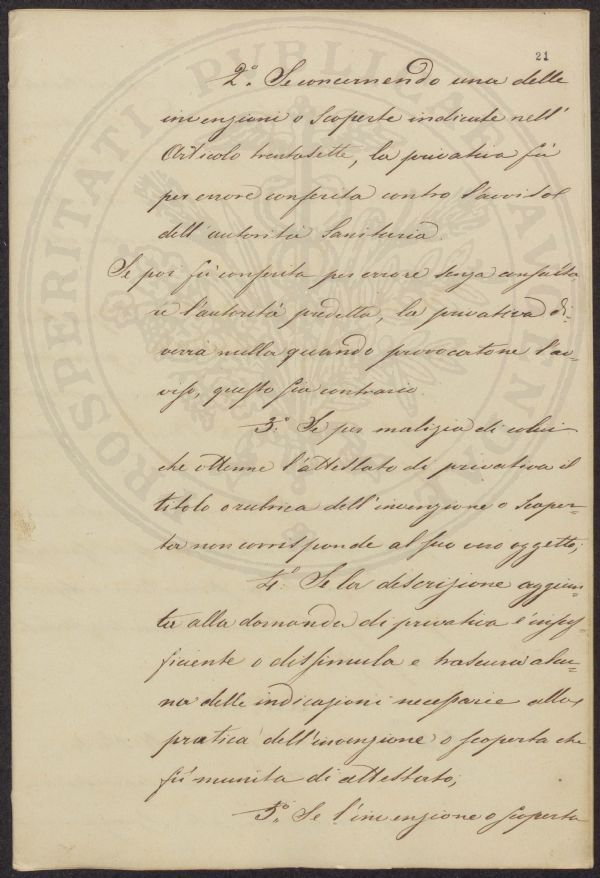 21
2.° Se concernendo una delle
invenzioni o scoperte indicate nell'
Articolo trentasette, la privativa fu
per errore conferita contro l'avviso
dell'autorità Sanitaria.
Se poi fu conferita per errore senza consulta-
re l'autorità predetta, la privativa di-
verrà nulla quando provocatone l'av-
viso, questo sia contrario.
3.° Se per malizia di colui
che ottenne l'attestato di privativa il
titolo o rubrica dell'invenzione o scoper-
ta non corrisponde al suo vero oggetto;
4.° Se la descrizione aggiun-
ta alla domanda di privativa è insuf-
ficiente o dissimula e trascura alcu-
na delle indicazioni necessarie alla
pratica dell'invenzione o scoperta che
fu munita di attestato;
5.° Se l'invenzione o scoperta
PROSPERITATI PUBLICAE